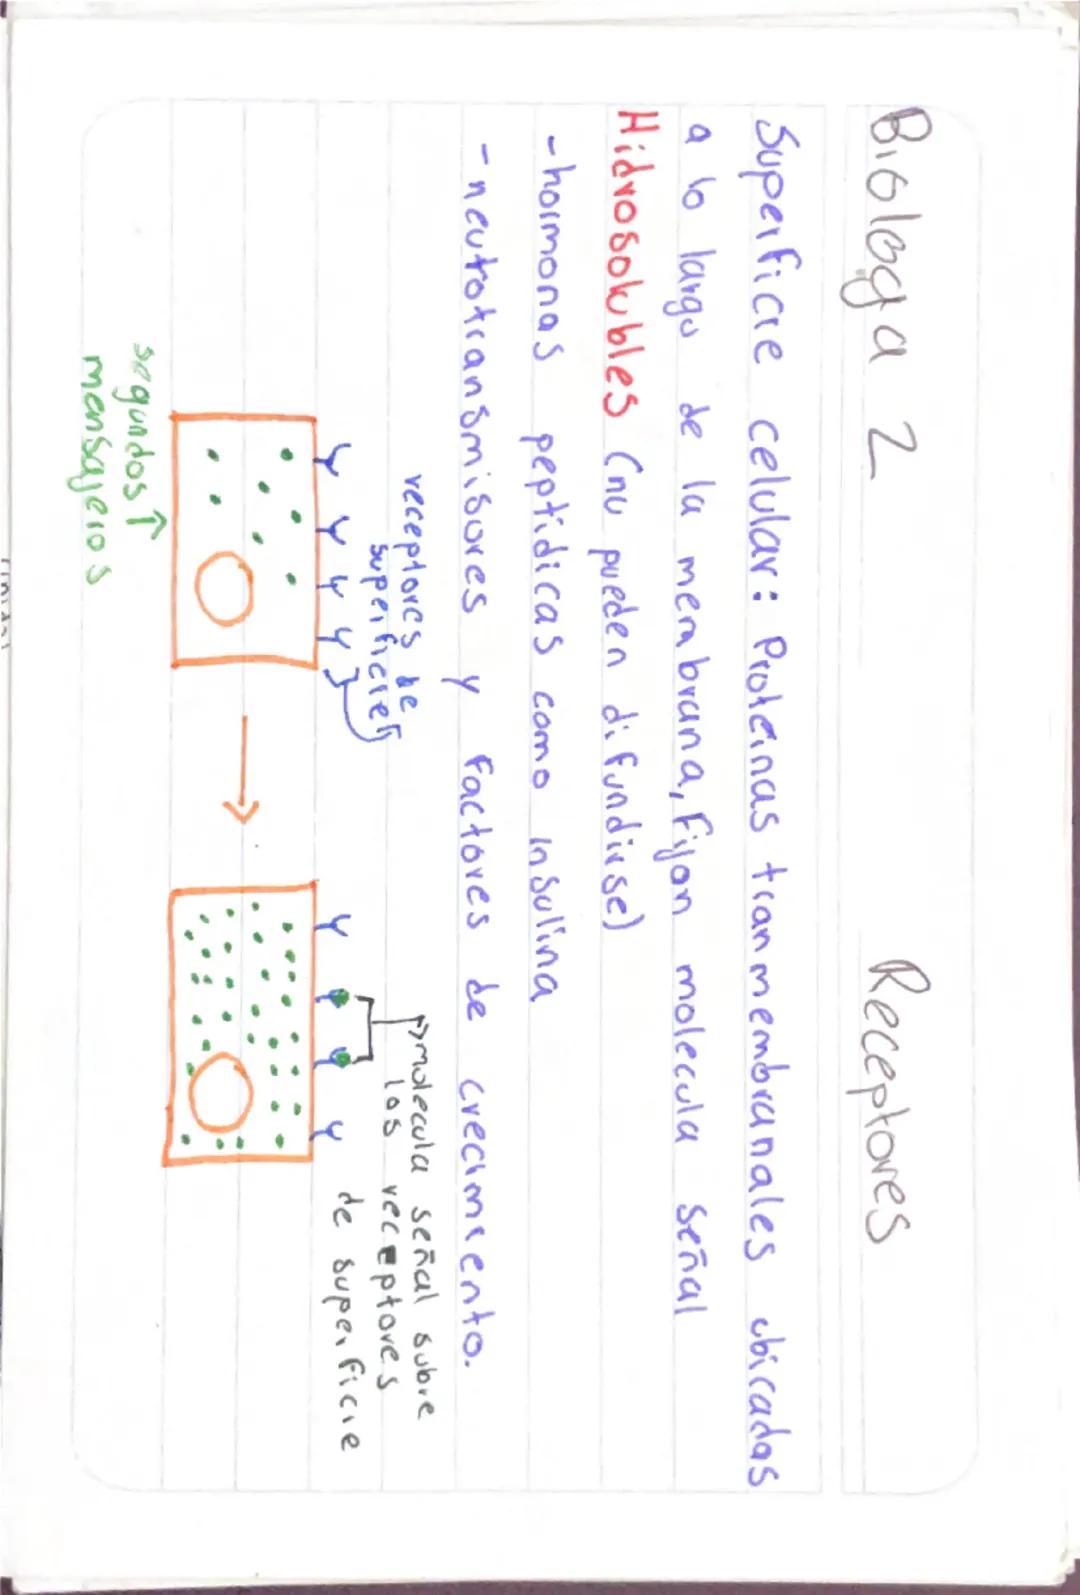 Biología 2
Receptores
Superficie celular: Proteinas tranmembranales ubicadas
a lo largo de la membrana, fijan molecula señal
Hidrosolubles (no pueden difundirse)
- hormonas peptidicas como insulina
- neutrotransmisores y factores de crecimiento.
receptores de
superficie
molecula señal sobre
los receptores
de superficie
segundos
mensajeros